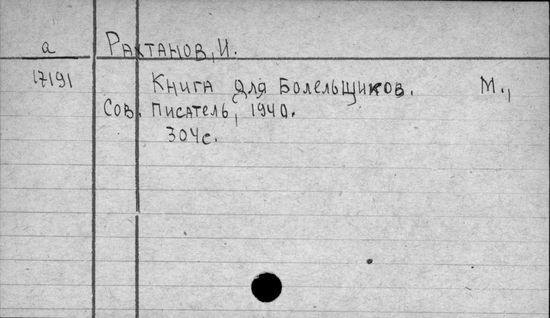 а Рахтанов, И.
17191 Книга для Болельщиков. М.,
Сов. Писатель, 1940.
304с.